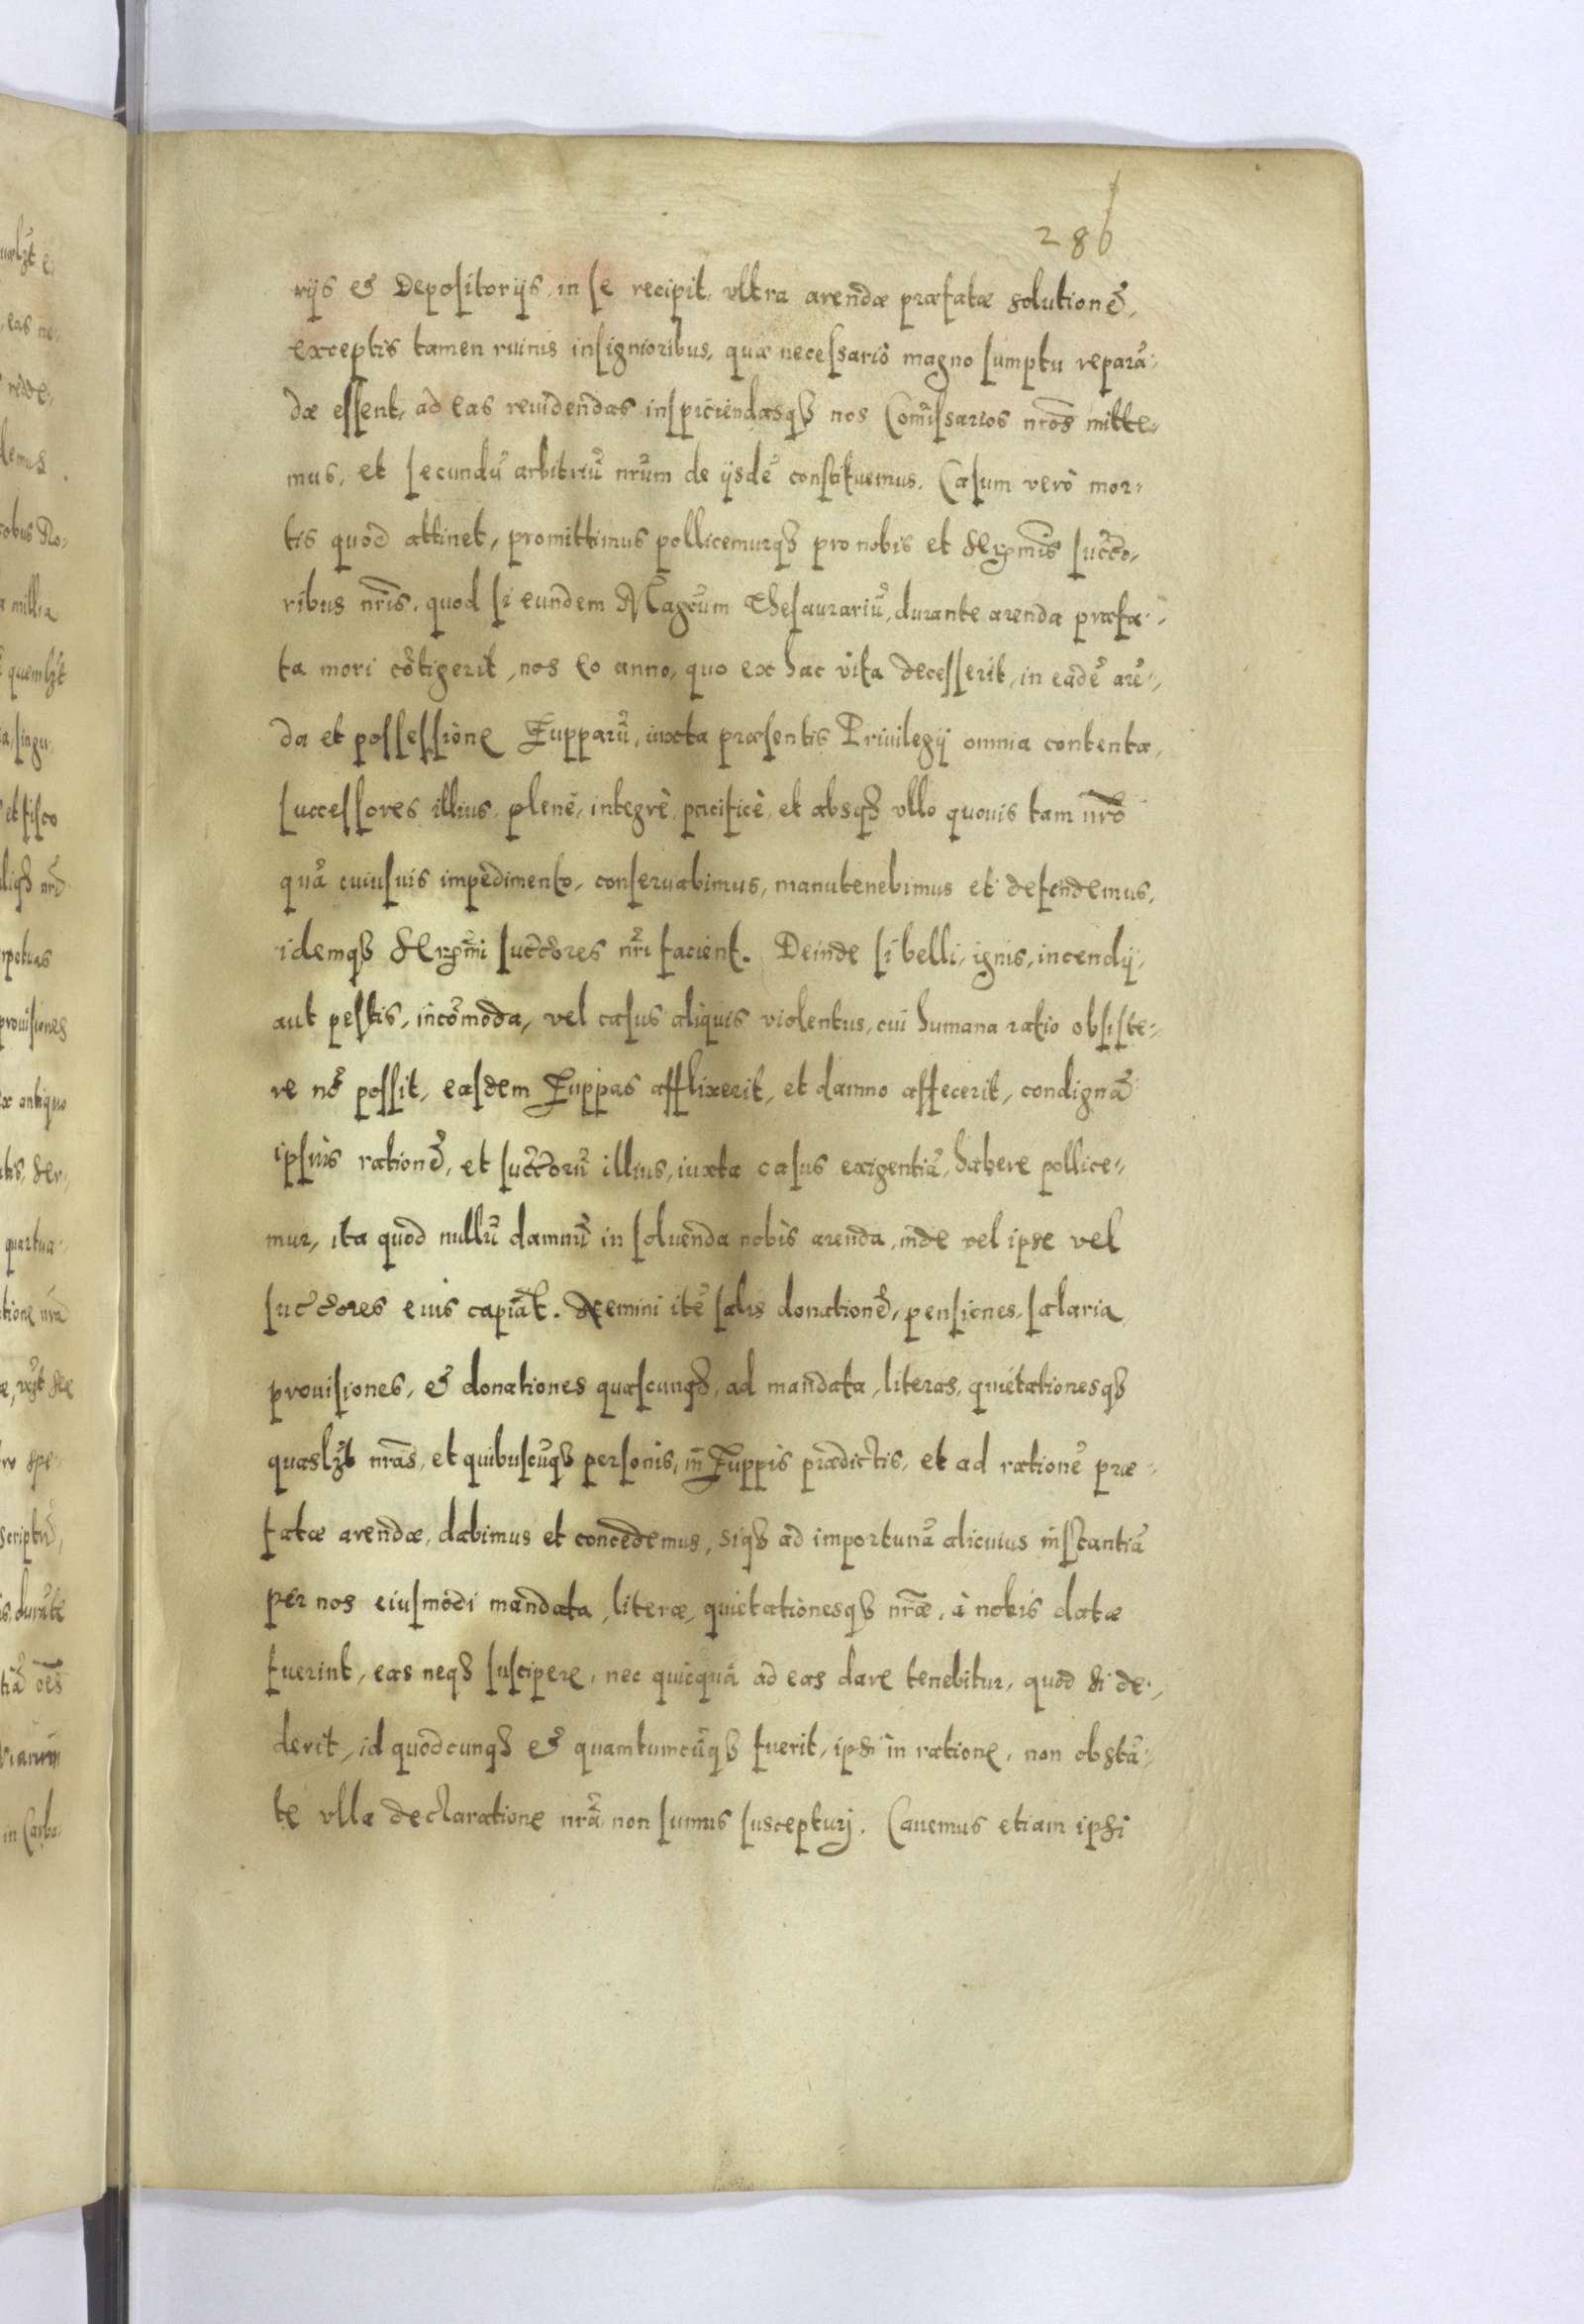 286
rijs et Depositorijs, in se recipit, vltra arendæ præfatæ solutionē,
exceptis tamen ruinis insignioribus, quæ necessario magno sumptu reparā-
dæ essent, ad eas reuidendas inspiciendasqꝫ nos Com̃issarios nr̃os mitte-
mus, et secundū arbitriū nr̃um de ijsdē constituemus. Casum verò mor-
tis quod attinet, promittimus pollicemurqꝫ pro nobis et Serm̃is succ̃o-
ribus nr̃is, quod si eundem Magc̃um Thesaurariū, durante arenda præfa-
ta mori cōtigerit, nos eo anno, quo ex hac vita decesserit, in eadē arē-
da et possessione Zupparū, iuxta præsentis Priuilegij omnia contenta,
successores illius, plenè, integrè, pacificè, et absqꝫ vllo quouis tam nr̃o
quā cuiusuis impedimento, conseruabimus, manutenebimus et defendemus,
idemqꝫ Serm̃i succ̃ores nr̃i facient. Deinde si belli, ignis, incendij,
aut pestis, incōmoda, vel casus aliquis violentus, cui humana ratio obsiste-
re nō possit, easdem Zuppas afflixerit, et damno affecerit, condignā
ipsius rationē, et succ̃orū illius, iuxta casus exigentiā, habere pollice-
mur, ita quod nullū damnū in soluenda nobis arenda, inde vel ipse vel
succ̃ores eius capiāt. Nemini itē salis donationē, pensiones, salaria,
prouisiones, et donationes quascunqꝫ, ad mandata, literas, quietationesqꝫ
quaslꝫt nr̃as, et quibuscūqꝫ personis, in Zuppis prædictis, et ad rationē præ-
fatæ arendæ, dabimus et concedemus, siqꝫ ad importunā alicuius instantiā
per nos eiusmodi mandata, literæ, quietationesqꝫ nr̃æ, à nobis datæ
fuerint, eas neqꝫ suscipere, nec quicquā ad eas dare tenebitur, quod si de-
derit, id quodcunqꝫ et quantumcūqꝫ fuerit, ipsi in ratione, non obstā-
te vlla declaratione nr̃a non sumus suscepturj. Cauemus etiam ipsi